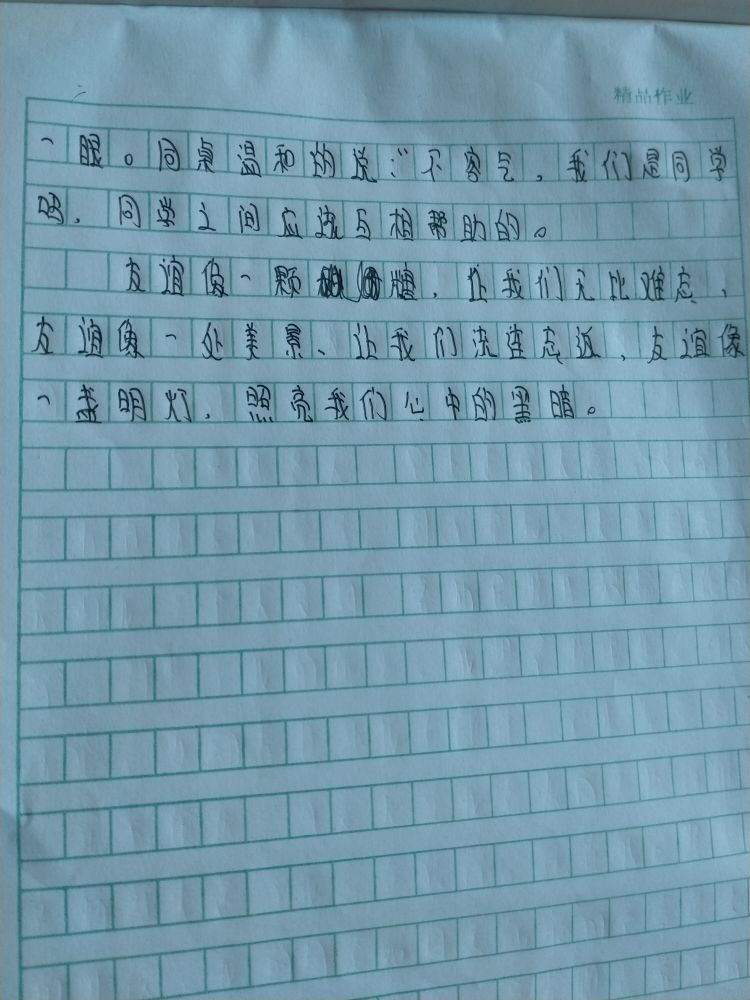 精品作业
一眼。同桌温和的说:“不客气,我们是同学
吗,同学之间应该互相帮助的。
友谊像一颗糖,让我们无比难忘,
友谊像一处美景、让我们流连忘返,友谊像
一盏明灯,照亮我们心中的黑暗。